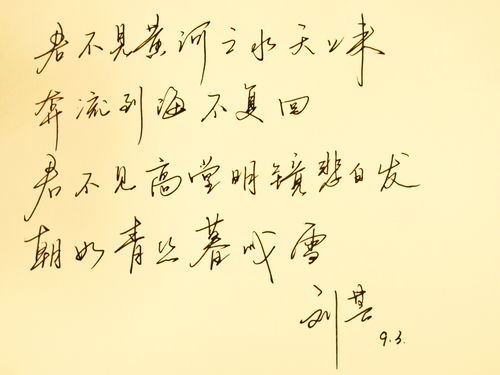 君不见黄河之水天上来
奔流到海不复回
君不见高堂明镜悲白发
朝如青丝暮成雪
刘其
9.3.